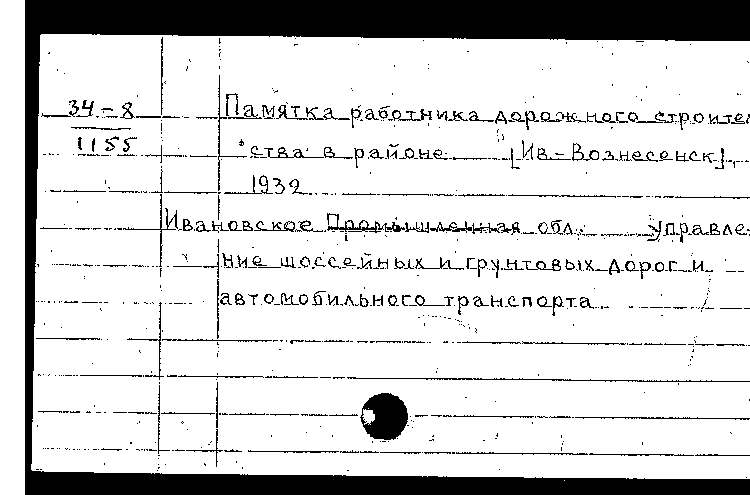 34-8
1155
Памятка работника дорожного строитель
ства в районе [Ив-Вознесенск],
1932
Ивановское Промышленная обл. Управле-
ние шоссейных и грунтовых дорог и
автомобильного транспорта